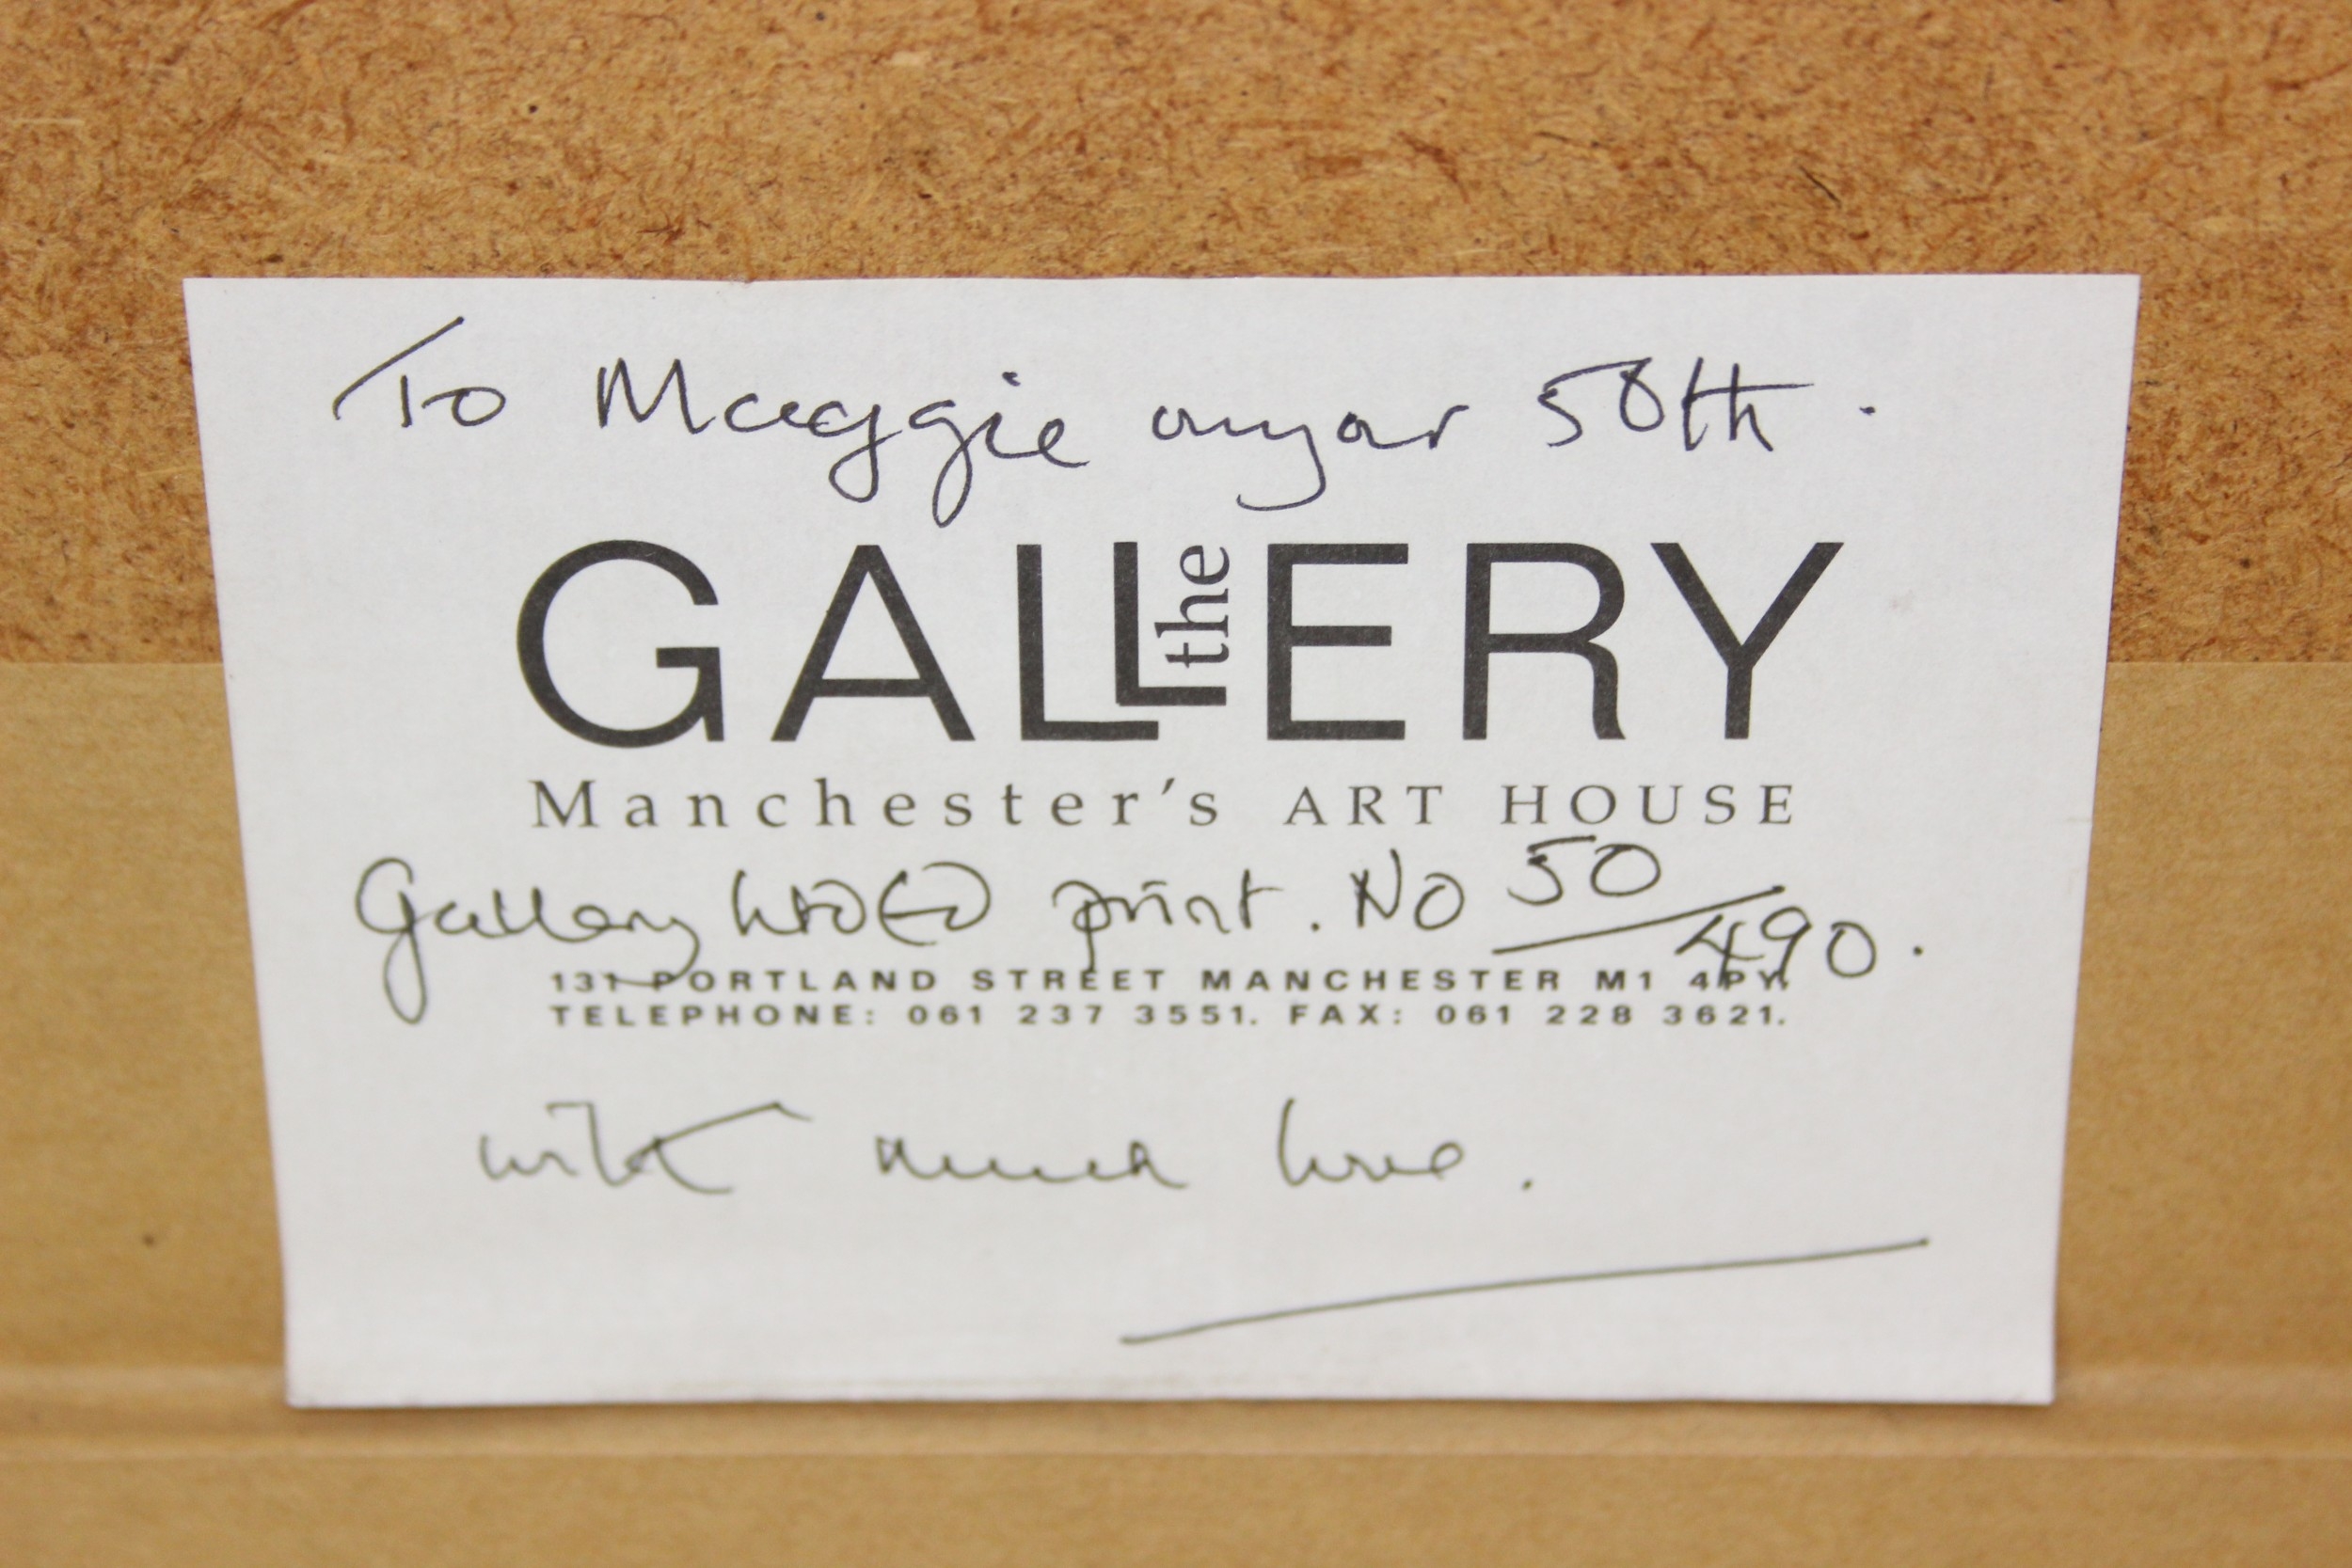 To Maggie on your 50th.
the GALLERY
Manchester's ART HOUSE
Gallery print. No 50/490.
131 PORTLAND STREET MANCHESTER M1 4PY.
TELEPHONE: 061 237 3551. FAX: 061 228 3621.
with much love.